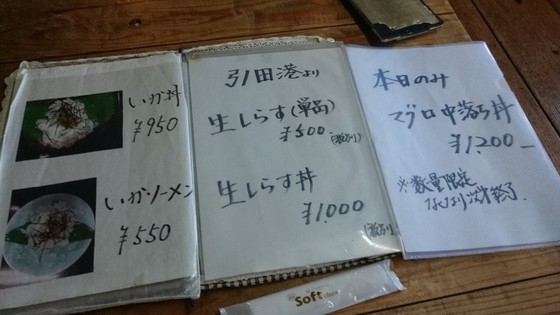 いか丼
¥950
いかソーメン
¥550
引田港より
生しらす(単品)
¥500
(税別)
生しらす丼
¥1,000
(税別)
本日のみ
マグロ中落ち丼
¥1,200
※数量限定
なくなり次第終了
Soft